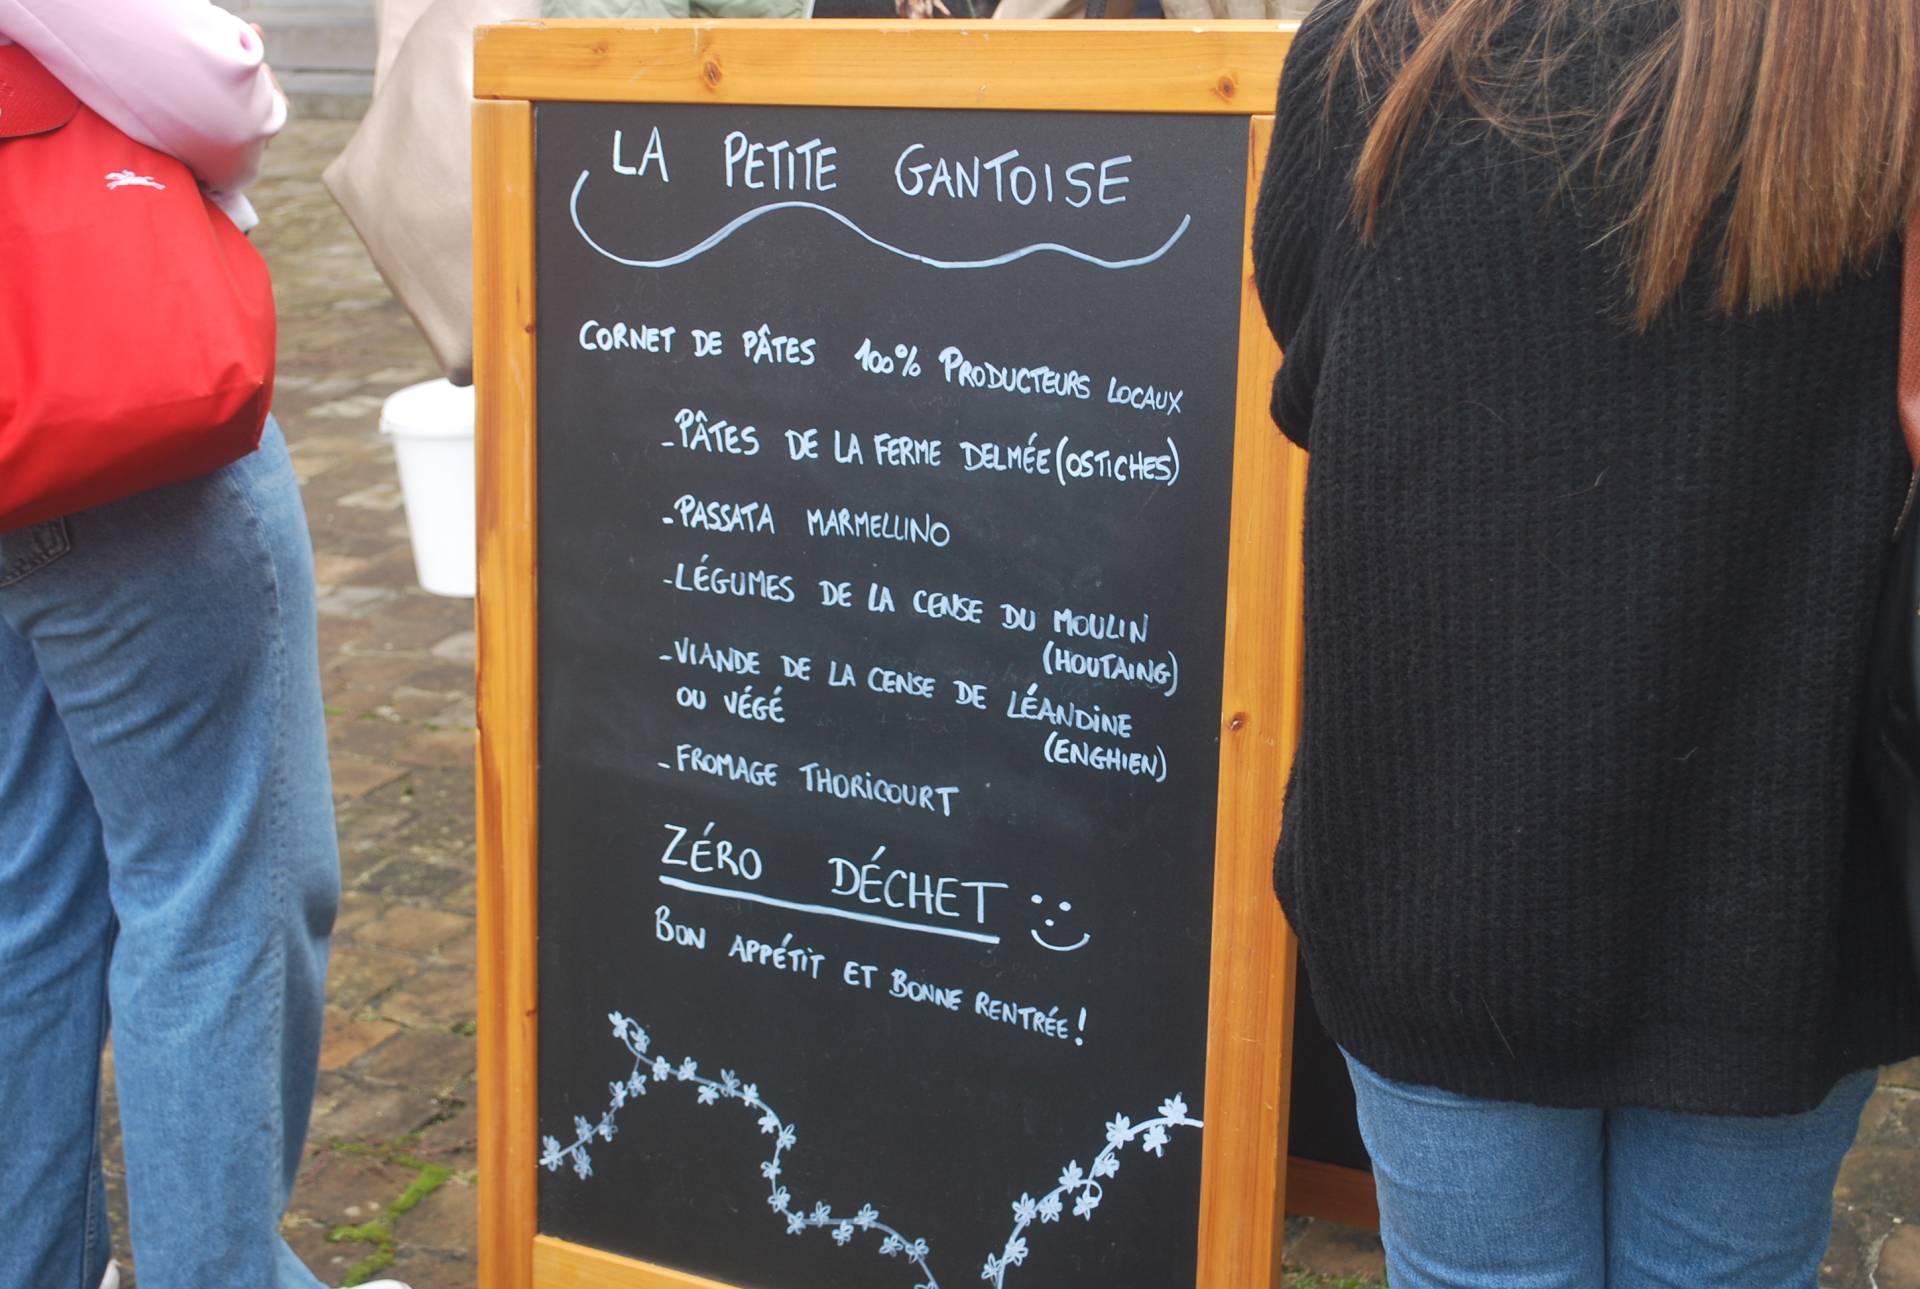 LA PETITE GANTOISE
CORNET DE PÂTES 100% PRODUCTEURS LOCAUX
-PÂTES DE LA FERME DELMÉE (OSTICHES)
-PASSATA MARMELLINO
-LÉGUMES DE LA CENSE DU MOULIN
(HOUTAING)
-VIANDE DE LA CENSE DE LÉANDINE
OU VÉGÉ
(ENGHIEN)
-FROMAGE THORICOURT
ZÉRO DÉCHET
BON APPÉTIT ET BONNE RENTRÉE!